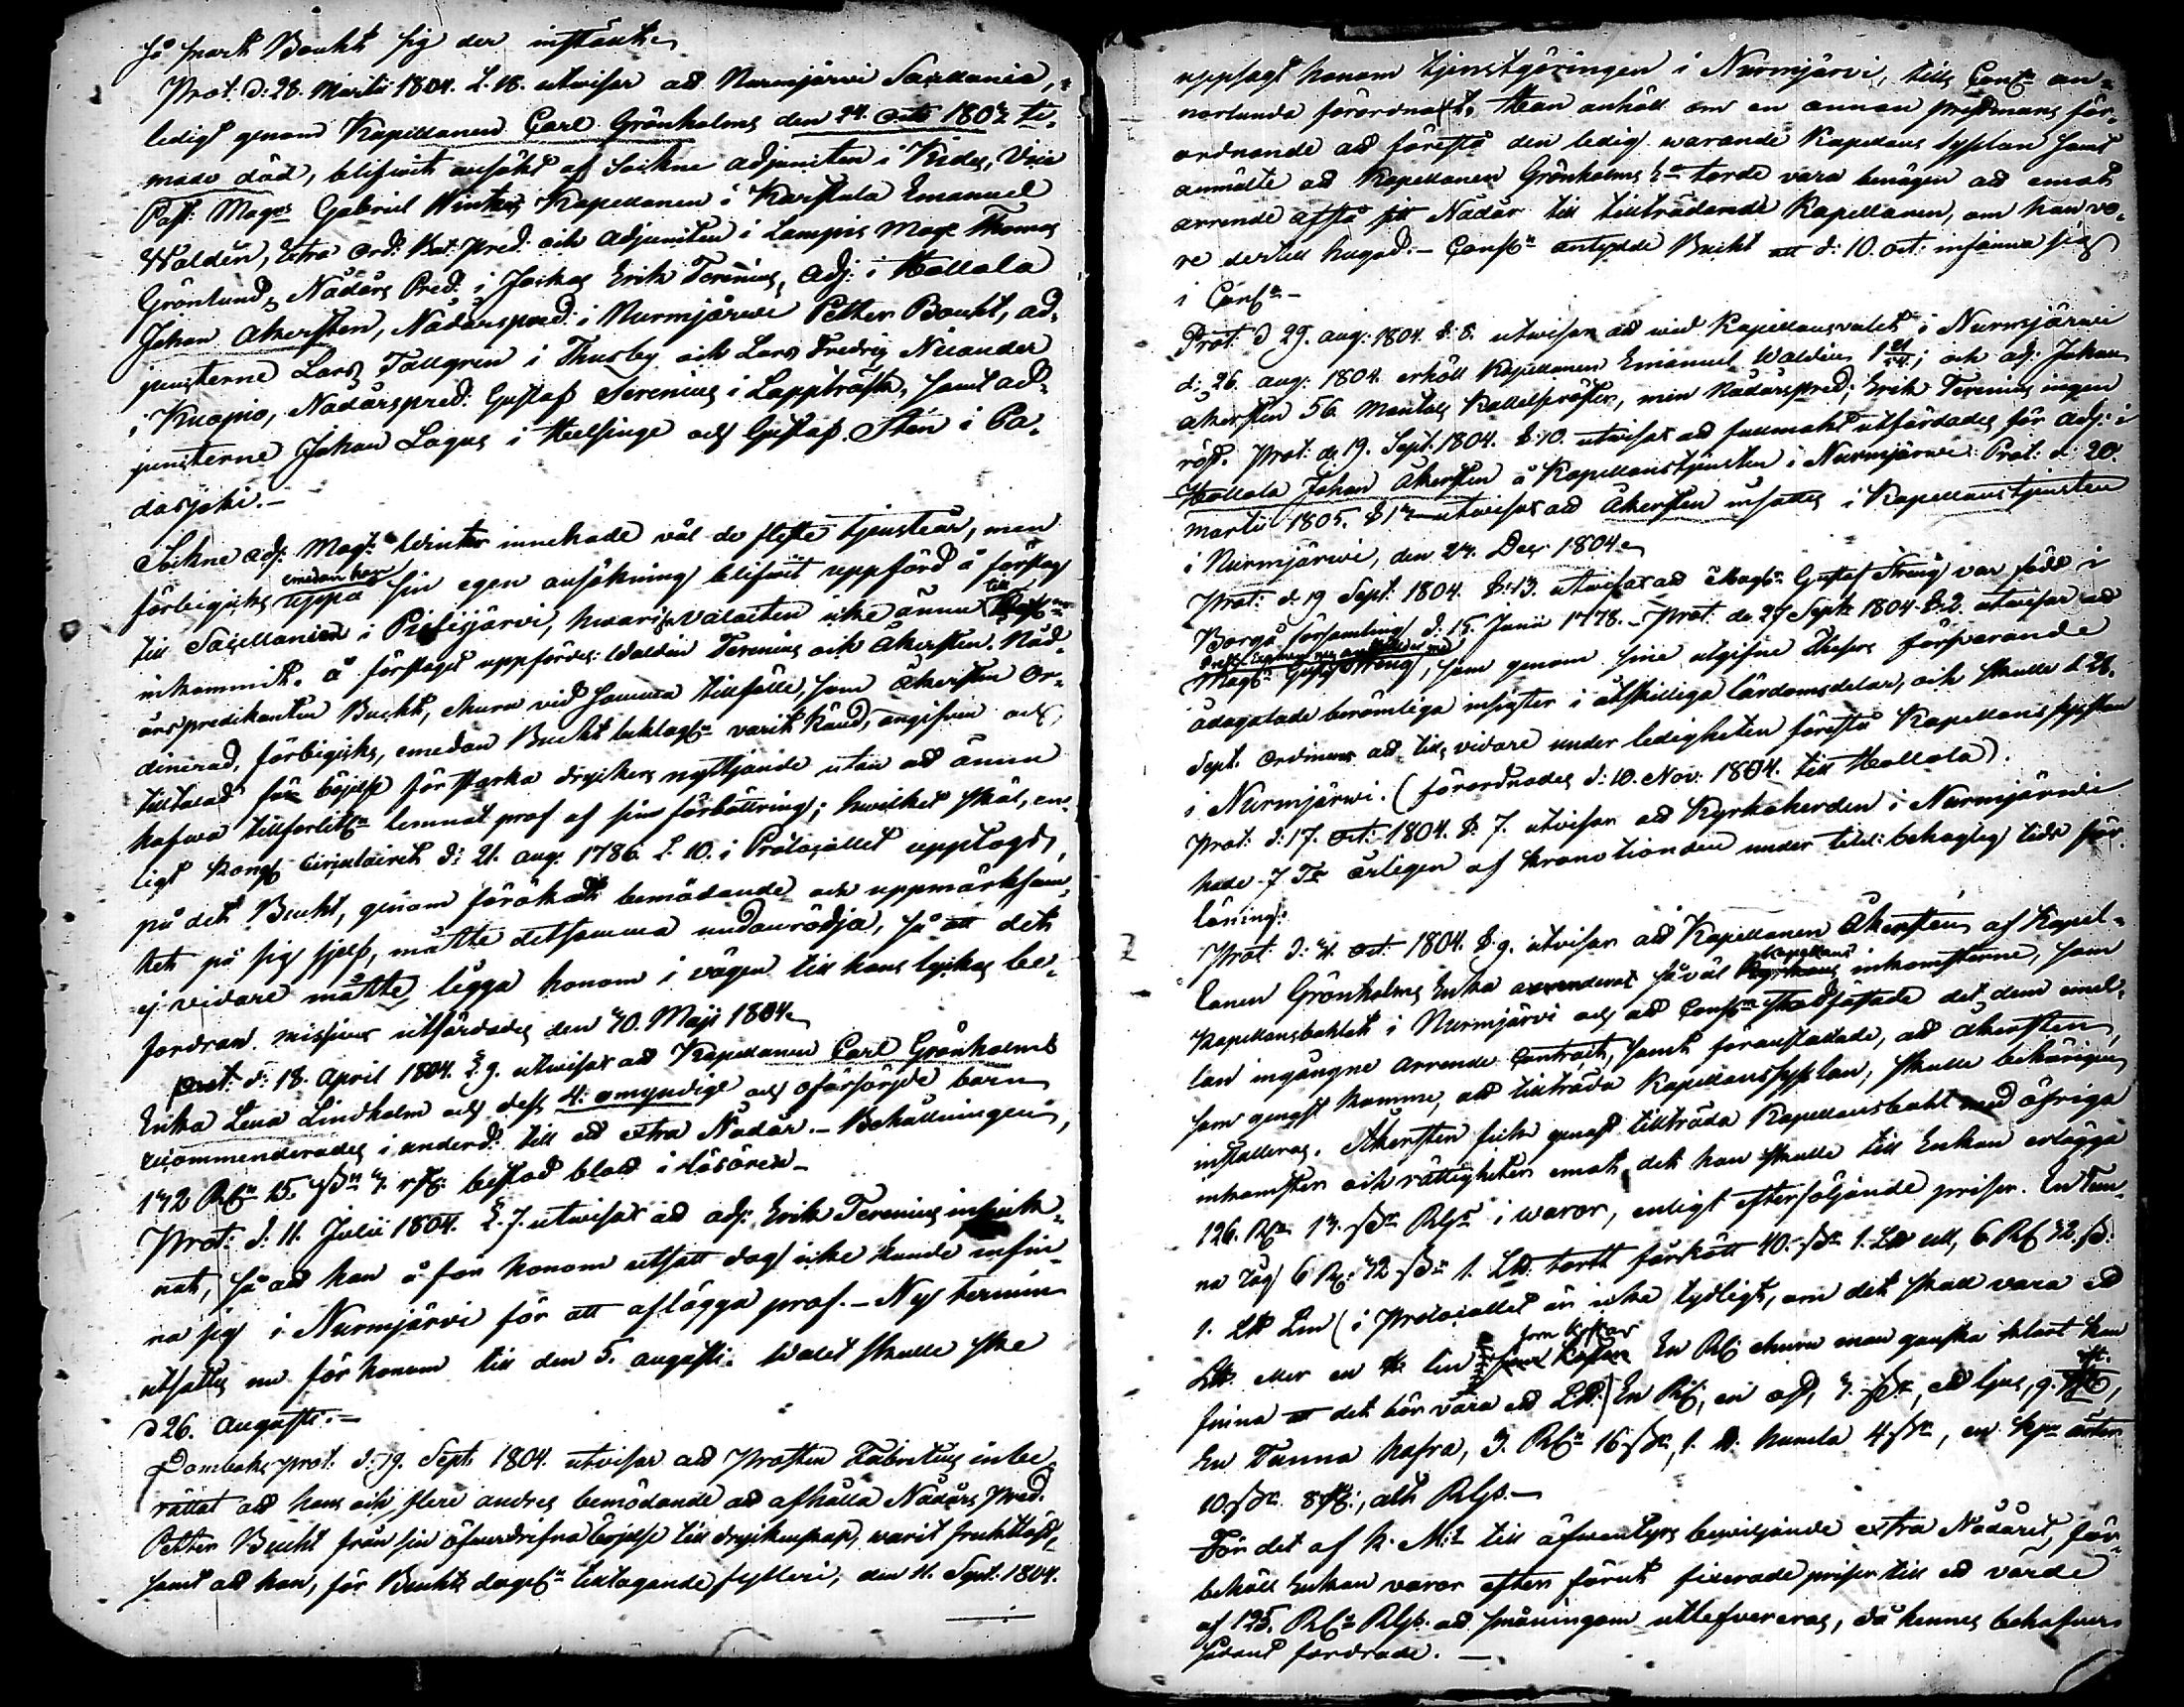 så snart Buckt sig der instält.
Prot: d: 28. Martii 1804. §.18. utwisar ad Nurmjärvi Sacellanie,
ledigt genom Kapellanen Carl Grönholms den 24. Octb 1803 ti-
made död, blifwit ansökt af Sockne adjuncten i Kides, Vice
Past: Mag: Gabriel Winter, Kapellanen i Karstula Emanuel
Waldén, Extra Ord: Bat: Pred: och adjuncten i Lampis Mag: Thomas
Grönlund, Nådårs Pred: i Jockas Erik Terenius, Adj: i Hollola
Johan Åkersten, Nådårspred: i Nurmjärwi Petter Bucht, ad-
juncterne Lars Tallgren i Thusby och Lars Fredrig Nicander
i Kuopio, Nådårspred: Gustaf Serenius i Lappträsk, samt ad-
juncterne Johan Lagus i Helsinge och Gustaf Stén i Pa-
dasjoki.-
Sockne adj: Mag: Winter innehade väl de fleste tjensteår, men
förbigicks emedan han uppå sin egen ansökning blifwit uppförd å förslag
till Sacellanien i Pielisjärvi, hwarifr. valacten icke ännu till
inkommit. å förslaget uppfördes: Waldén Terenius och Åkersten. Nåd-
årspredikanten Buckt, ehuru vid samma tillfälle, som Åkersten Or-
dinerad, förbigicks, emedan Buckt beklagl. varit känd, angifven och
tilltalad för böjelse för starka dryckers nyttjande utan att ännu
hafwa tillförlitl. lemnat prof af sin förbättring; hwilket skäl, en-
ligt Kongl Circulairet d: 21. aug: 1786. §. 10. i Protocollet upptogs,
på det Buckt, genom förökadt bemödande och uppmärksam-
het på sig sjelf, måtte detsamma undanrödja, så att det
ej vidare måtte ligga honom i vägen till hans lyckas be-
fordran. missiver utfärdades den 30. Maji 1804.
Prot: d: 18. April 1804. §. 9. utwisar ad Kapellanen Carl Grönholms
Enka Lena Lindholm och dess 4: omyndige och oförsörjde barn
recommenderades i underd: till ett extra Nådår.- Behållningen,
132 Rd 15. sk 3. rst: bestod blott i lösören.-
Prot: d: 11. Julii 1804. §. 7. utwisar ad adj: Erik Terenius insjuk-
nat, så ad han å för honom utsatt dag icke kunde infin-
na sig i Nurmjärvi för att aflägga prof.- Ny termin
utsattes nu för honom till den 5. augusti. Walet skulle ske
d 26. augusti.-
Domboks prot. d: 19. Sept: 1804. utvisar ad Prosten Fabritius inbe-
rättat ad hans och flere andres bemödande ad afhålla Nådårs Pred:
Petter Bucht från sin öfwerdrifna böjelse till dryckenskap, warit fruktlöst,
samt ad han, för Buchts dagel. tilltagande fylleri, den 11. Sept. 1804.
uppsagt honom tjenstgöringen i Nurmjärvi, tills Cons. an-
norlunda förordnat. Han anhöll om en annan prestmans för-
ordnande ad förestå den ledig warande Kapellans sysslan samt
anmälte ad Kapellanen Grönholms E:a torde vara benägen ad emot
arrende afstå sitt Nådår till tillträdande Kapellanen, om han vo-
re dertill hugad.- Cons. antydde Bucht att d: 10. oct: infinna sig
i Cons.-
Prot: d 29. aug: 1804. §. 8. utwisar ad wid Kapellansvalet i Nurmjärwi
d: 26. aug: 1804. erhöll Kapellanen Emanuel Waldén, och adj: Johan
Åkersten 56. Mantals Kallelseröster, men Nådårspred: Erik Terenius ingen
röst. Prot: d: 19. Sept: 1804. §.10. utwisar ad fullmakt utfärdades för adj: i
Hollola Johan Åkersten å Kapellanstjensten i Nurmjärwi. Prot: d: 20.
Martii 1805. §.13 utwisar ad Åkersten insattes i Kapellanstjensten
i Nurmjärwi, den 23. Dec: 1804.
Prot: d: 19 Sept: 1804. §.13. utwisar ad Mag: Gustaf Streng var född i
Borgå församling d: 15. Junii 1778.- Prot: d: 29 Sept: 1804. §.2. utwisar ad
Mag: Gustaf Streng, som genom sine utgifne theser försvarande
ådagalade berömliga insigter i åtskilliga lärdomsdelar, och skulle d 26.
Sept. Ordineras ad tills vidare under ledigheten förestå Kapellanssysslan
i Nurmjärwi. (förordnades d: 10. Nov: 1804. till Hollola).
Prot: d: 17. Oct: 1804. §. 7. utvisar ad Kyrkoherden i Nurmjärwi
hade 7 Tr årligen af kronotionden under titel: behaglig tids för-
läning.
Prot: d: 31. Oct: 1804. §. 9. utvisar ad Kapellanen Åkersten, af Kapel-
lanen Grönholms Enka arrenderat såväl Kapellans inkomsterne, som
Kapellansbohlet i Nurmjärvi och ad Cons. stadfästade det dem emel-
lan ingångne arrende Contract, samt föranstaltade, ad Åkersten,
som genast komme, ad tillträda Kapellanssysslan, skulle behörigen
installeras. Åkersten fick genast tillträda Kapellansbohl med öfriga
inkomster och rättigheter emot det han skulle till Enkan erlägga
126. Rd 13. sk Rgs i waror, enligt efterföljande priser. En Tun-
na råg 6 Rd: 32 sk 1. Ld: torrt fårkött 40. sk 1. Ld ull, 6. Rd 32 sk:
1. Ld Lin (i Protocollet är icke tydligt, om det skall vara ett
Ld. eller en lin som kostar En Rd ehuru man ganska klart kan
finna att det bör vara ett Ld.) En Rd, en ost, 3. sk, ett ljus, 9. rst.,
En Tunna hafra, 3. Rd 16 sk, 1. humla 4 sk, en kpa ärter
10 sk. 8 rst:, allt Rgs.-
För det af K. M:t till äfwentyrs bewiljande extra Nådåret, för-
behöll Enkan varor efter förut fixerade priser till ett värde
af 125. Rd Rgs. ad småningom utlefvereras, då hennes behofwer
sådant fordrade.-